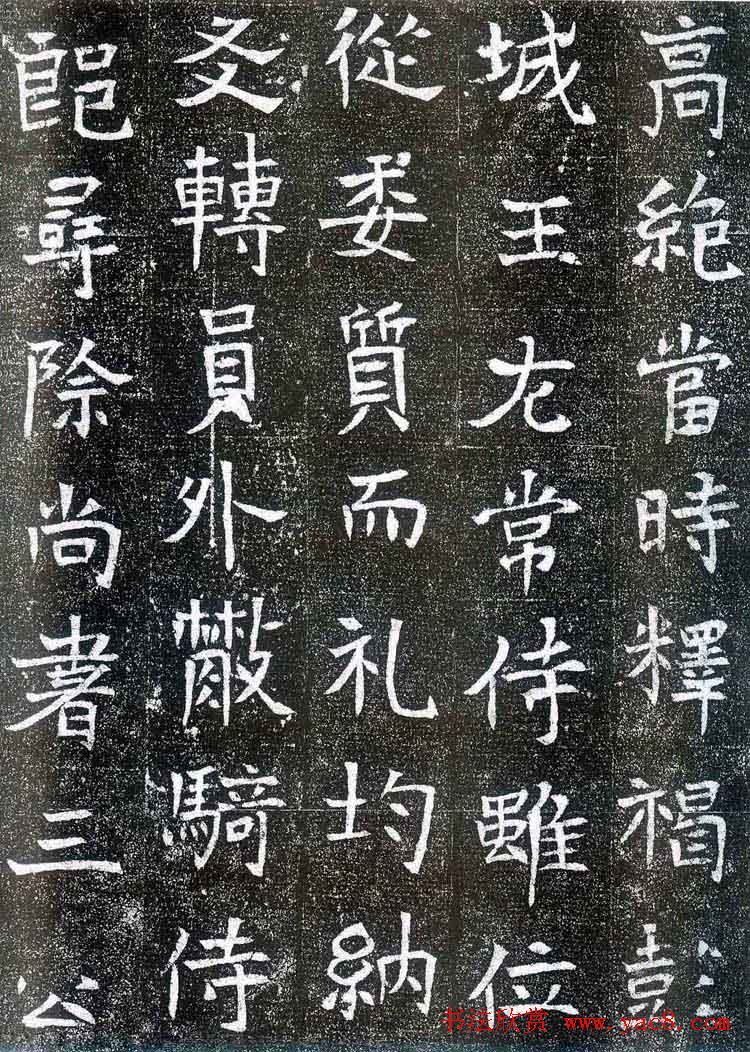 高絶當時釋褐彭
城王左常侍雖位
從委質而礼均納
友轉員外散騎侍
郎尋除尚書三公
书法欣赏 www.yac8.com